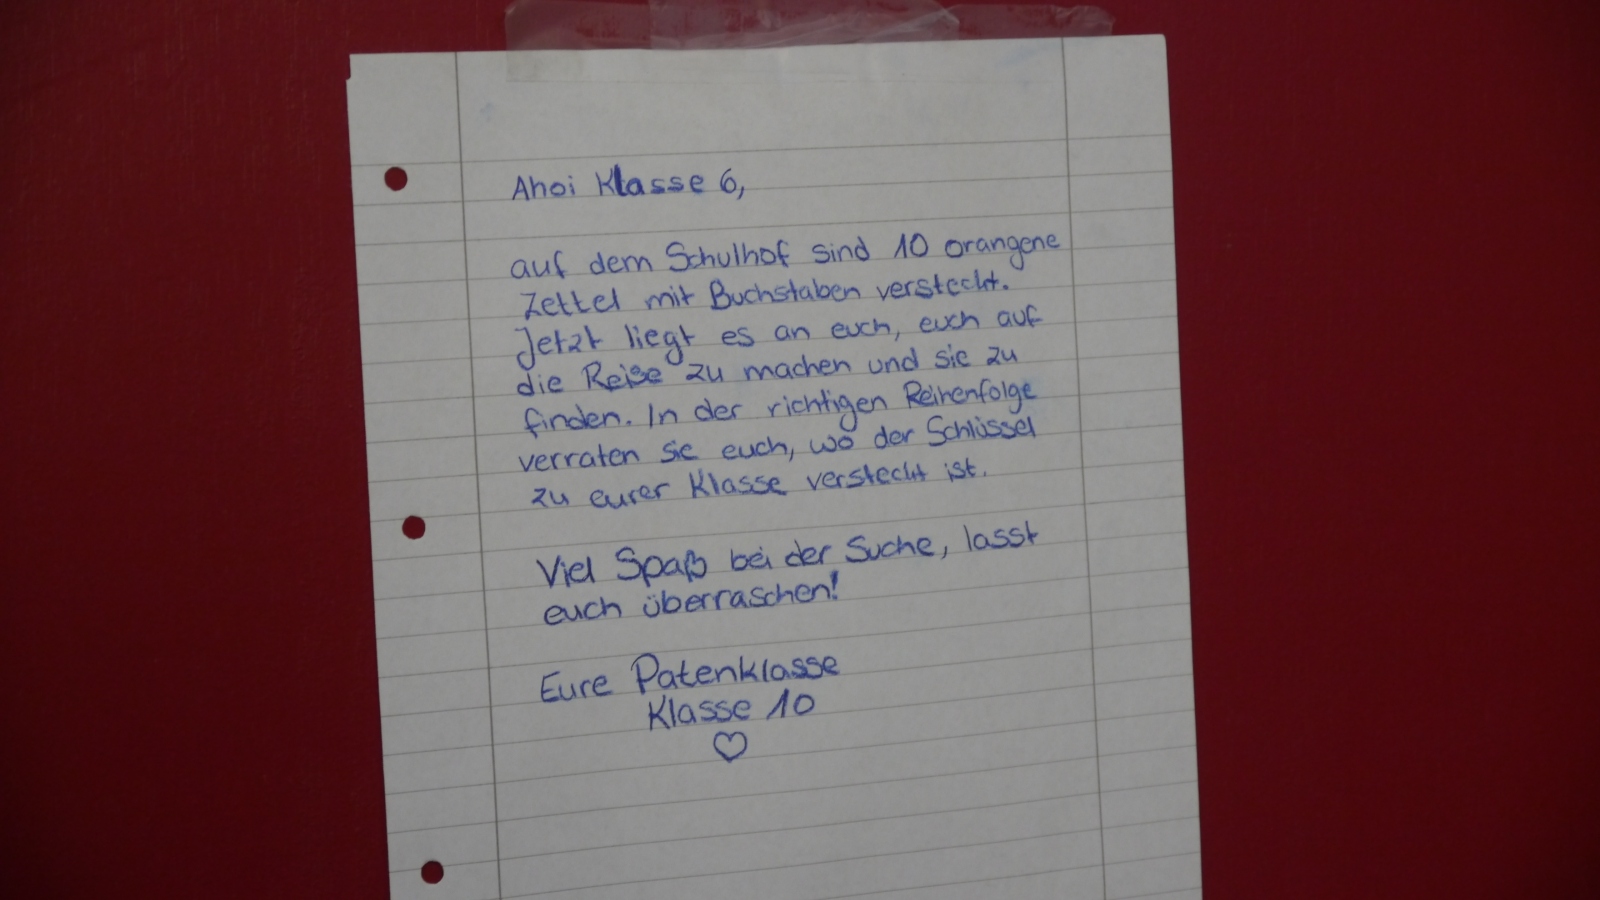 Ahoi Klasse 6,
auf dem Schulhof sind 10 orangene
Zettel mit Buchstaben versteckt.
Jetzt liegt es an euch, euch auf
die Reise zu machen und sie zu
finden. In der richtigen Reihenfolge
verraten sie euch, wo der Schlüssel
zu eurer Klasse versteckt ist.
Viel Spaß bei der Suche, lasst
euch überraschen!
Eure Patenklasse
Klasse 10